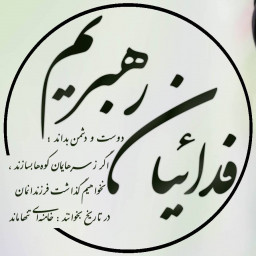 فدائیان رهبریم
دوست و دشمن بداند :
اگر ز سرهایمان کوه‌ها بسازند ،
نخواهیم گذاشت فرزندانمان
در تاریخ بخوانند : خامنه‌ای تنها ماند